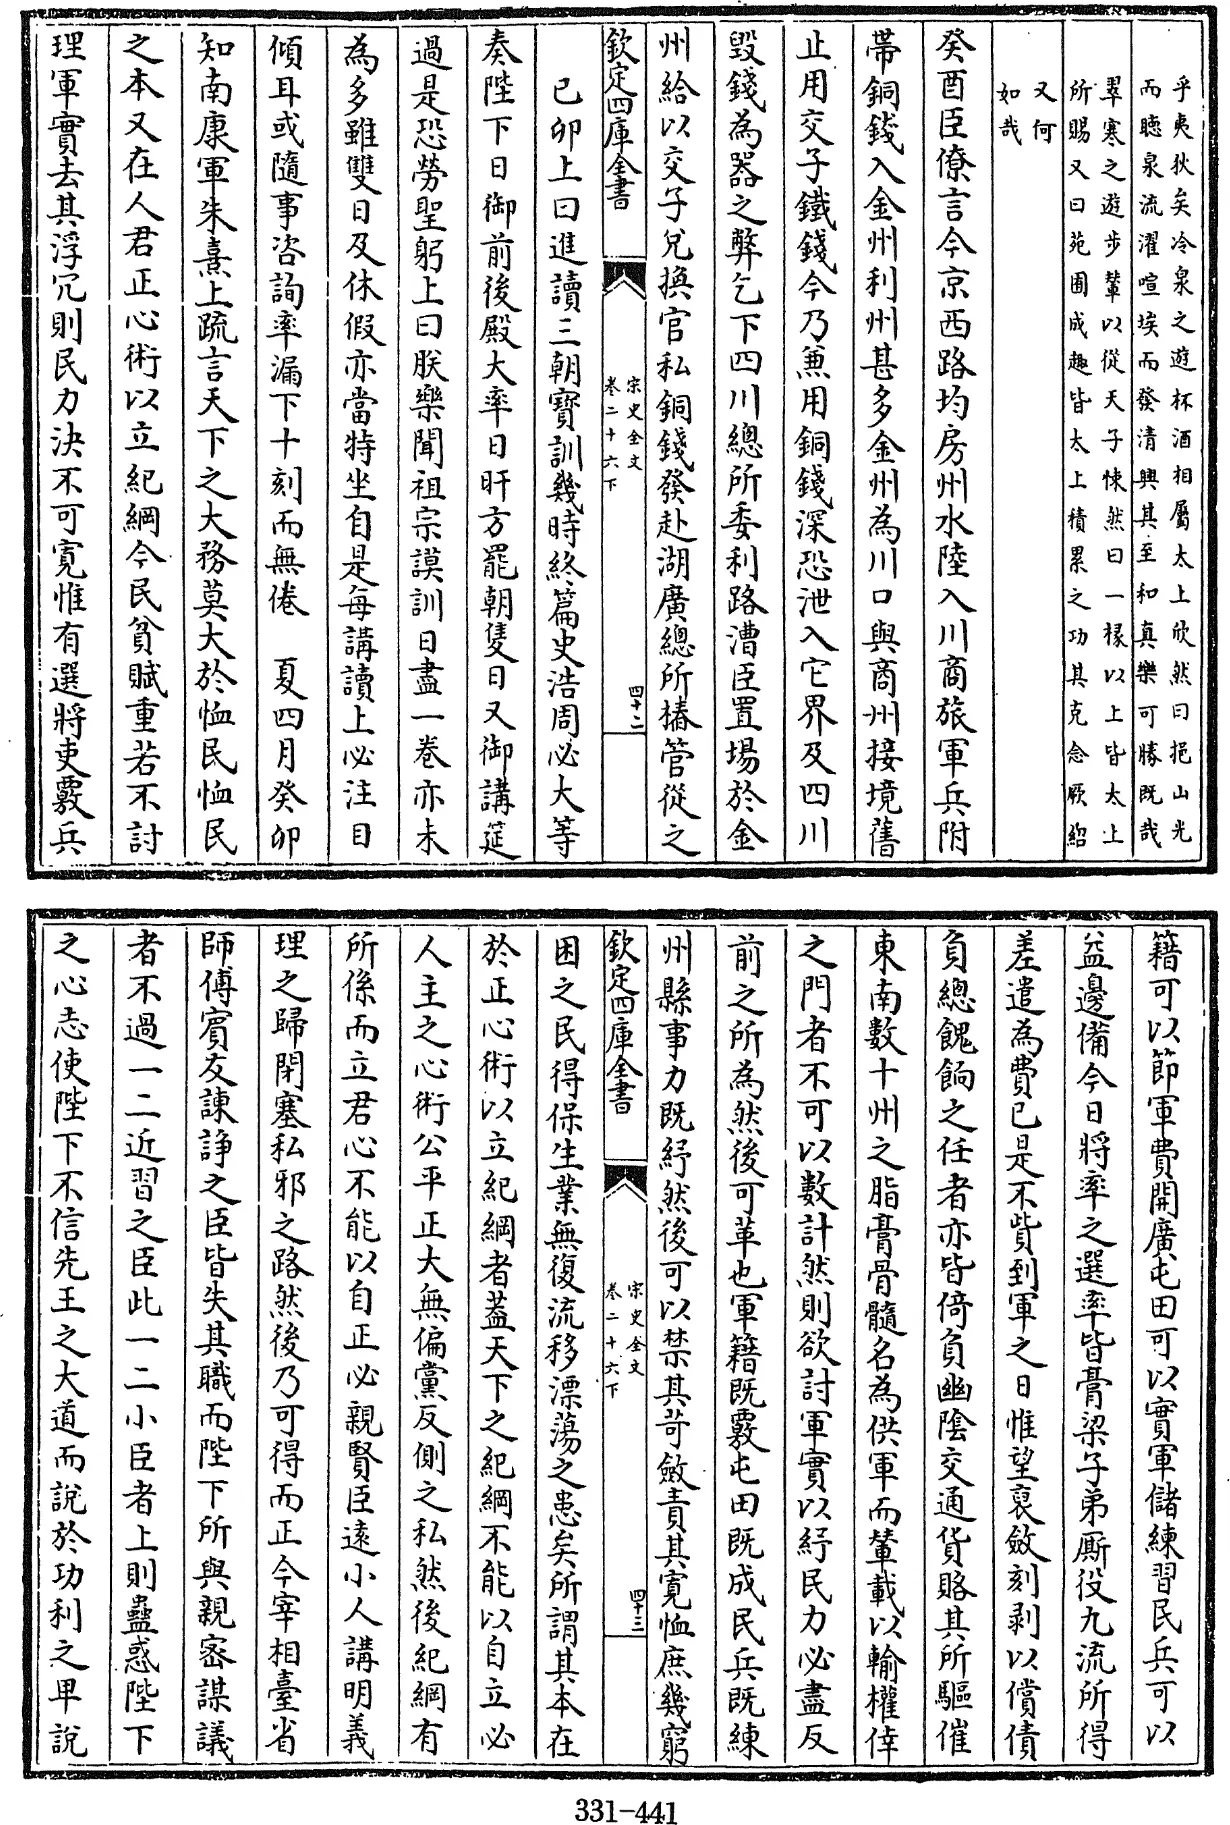 乎夷狄矣冷泉之遊杯酒相屬太上欣然曰挹山光
而聽泉流濯喧埃而發清興其至和真樂可勝既哉
翠寒之遊步輦以從天子悚然曰一椽以上皆太上
所賜又曰苑囿成趣皆太上積累之功其克念厥紹
又何
如哉
癸酉臣僚言今京西路均房州水陸入川商旅軍兵附
帶銅錢入金州利州甚多金州為川口與商州接境舊
止用交子鐵錢今乃兼用銅錢深恐泄入它界及四川
毀錢為器之弊乞下四川總所委利路漕臣置場於金
州給以交子兌換官私銅錢發赴湖廣總所樁管從之
欽定四庫全書
宋史全文
卷二十六下
四十二
己卯上曰進讀三朝寶訓幾時終篇史浩周必大等
奏陛下日御前後殿大率日旰方罷朝隻日又御講筵
過是恐勞聖躬上曰朕樂聞祖宗謨訓日盡一卷亦未
為多雖雙日及休假亦當特坐自是每講讀上必注目
傾耳或隨事咨詢率漏下十刻而無倦　夏四月癸卯
知南康軍朱熹上疏言天下之大務莫大於恤民恤民
之本又在人君正心術以立紀綱今民貧賦重若不討
理軍實去其浮冗則民力決不可寬惟有選將吏覈兵
籍可以節軍費開廣屯田可以實軍儲練習民兵可以
益邊備今日將率之選率皆膏粱子弟厮役九流所得
差遣為費已是不貲到軍之日惟望裒斂刻剥以償債
負總餽餉之任者亦皆倚負幽陰交通貨賂其所驅催
東南數十州之脂膏骨髓名為供軍而輦載以輸權倖
之門者不可以數計然則欲討軍實以紓民力必盡反
前之所為然後可革也軍籍既覈屯田既成民兵既練
州縣事力既紓然後可以禁其苛斂責其寬恤庶幾窮
欽定四庫全書
宋史全文
卷二十六下
四十三
困之民得保生業無復流移漂蕩之患矣所謂其本在
於正心術以立紀綱者蓋天下之紀綱不能以自立必
人主之心術公平正大無偏黨反側之私然後紀綱有
所係而立君心不能以自正必親賢臣遠小人講明義
理之歸閉塞私邪之路然後乃可得而正今宰相臺省
師傅賓友諫諍之臣皆失其職而陛下所與親密謀議
者不過一二近習之臣此一二小臣者上則蠱惑陛下
之心志使陛下不信先王之大道而說於功利之卑說
331-441